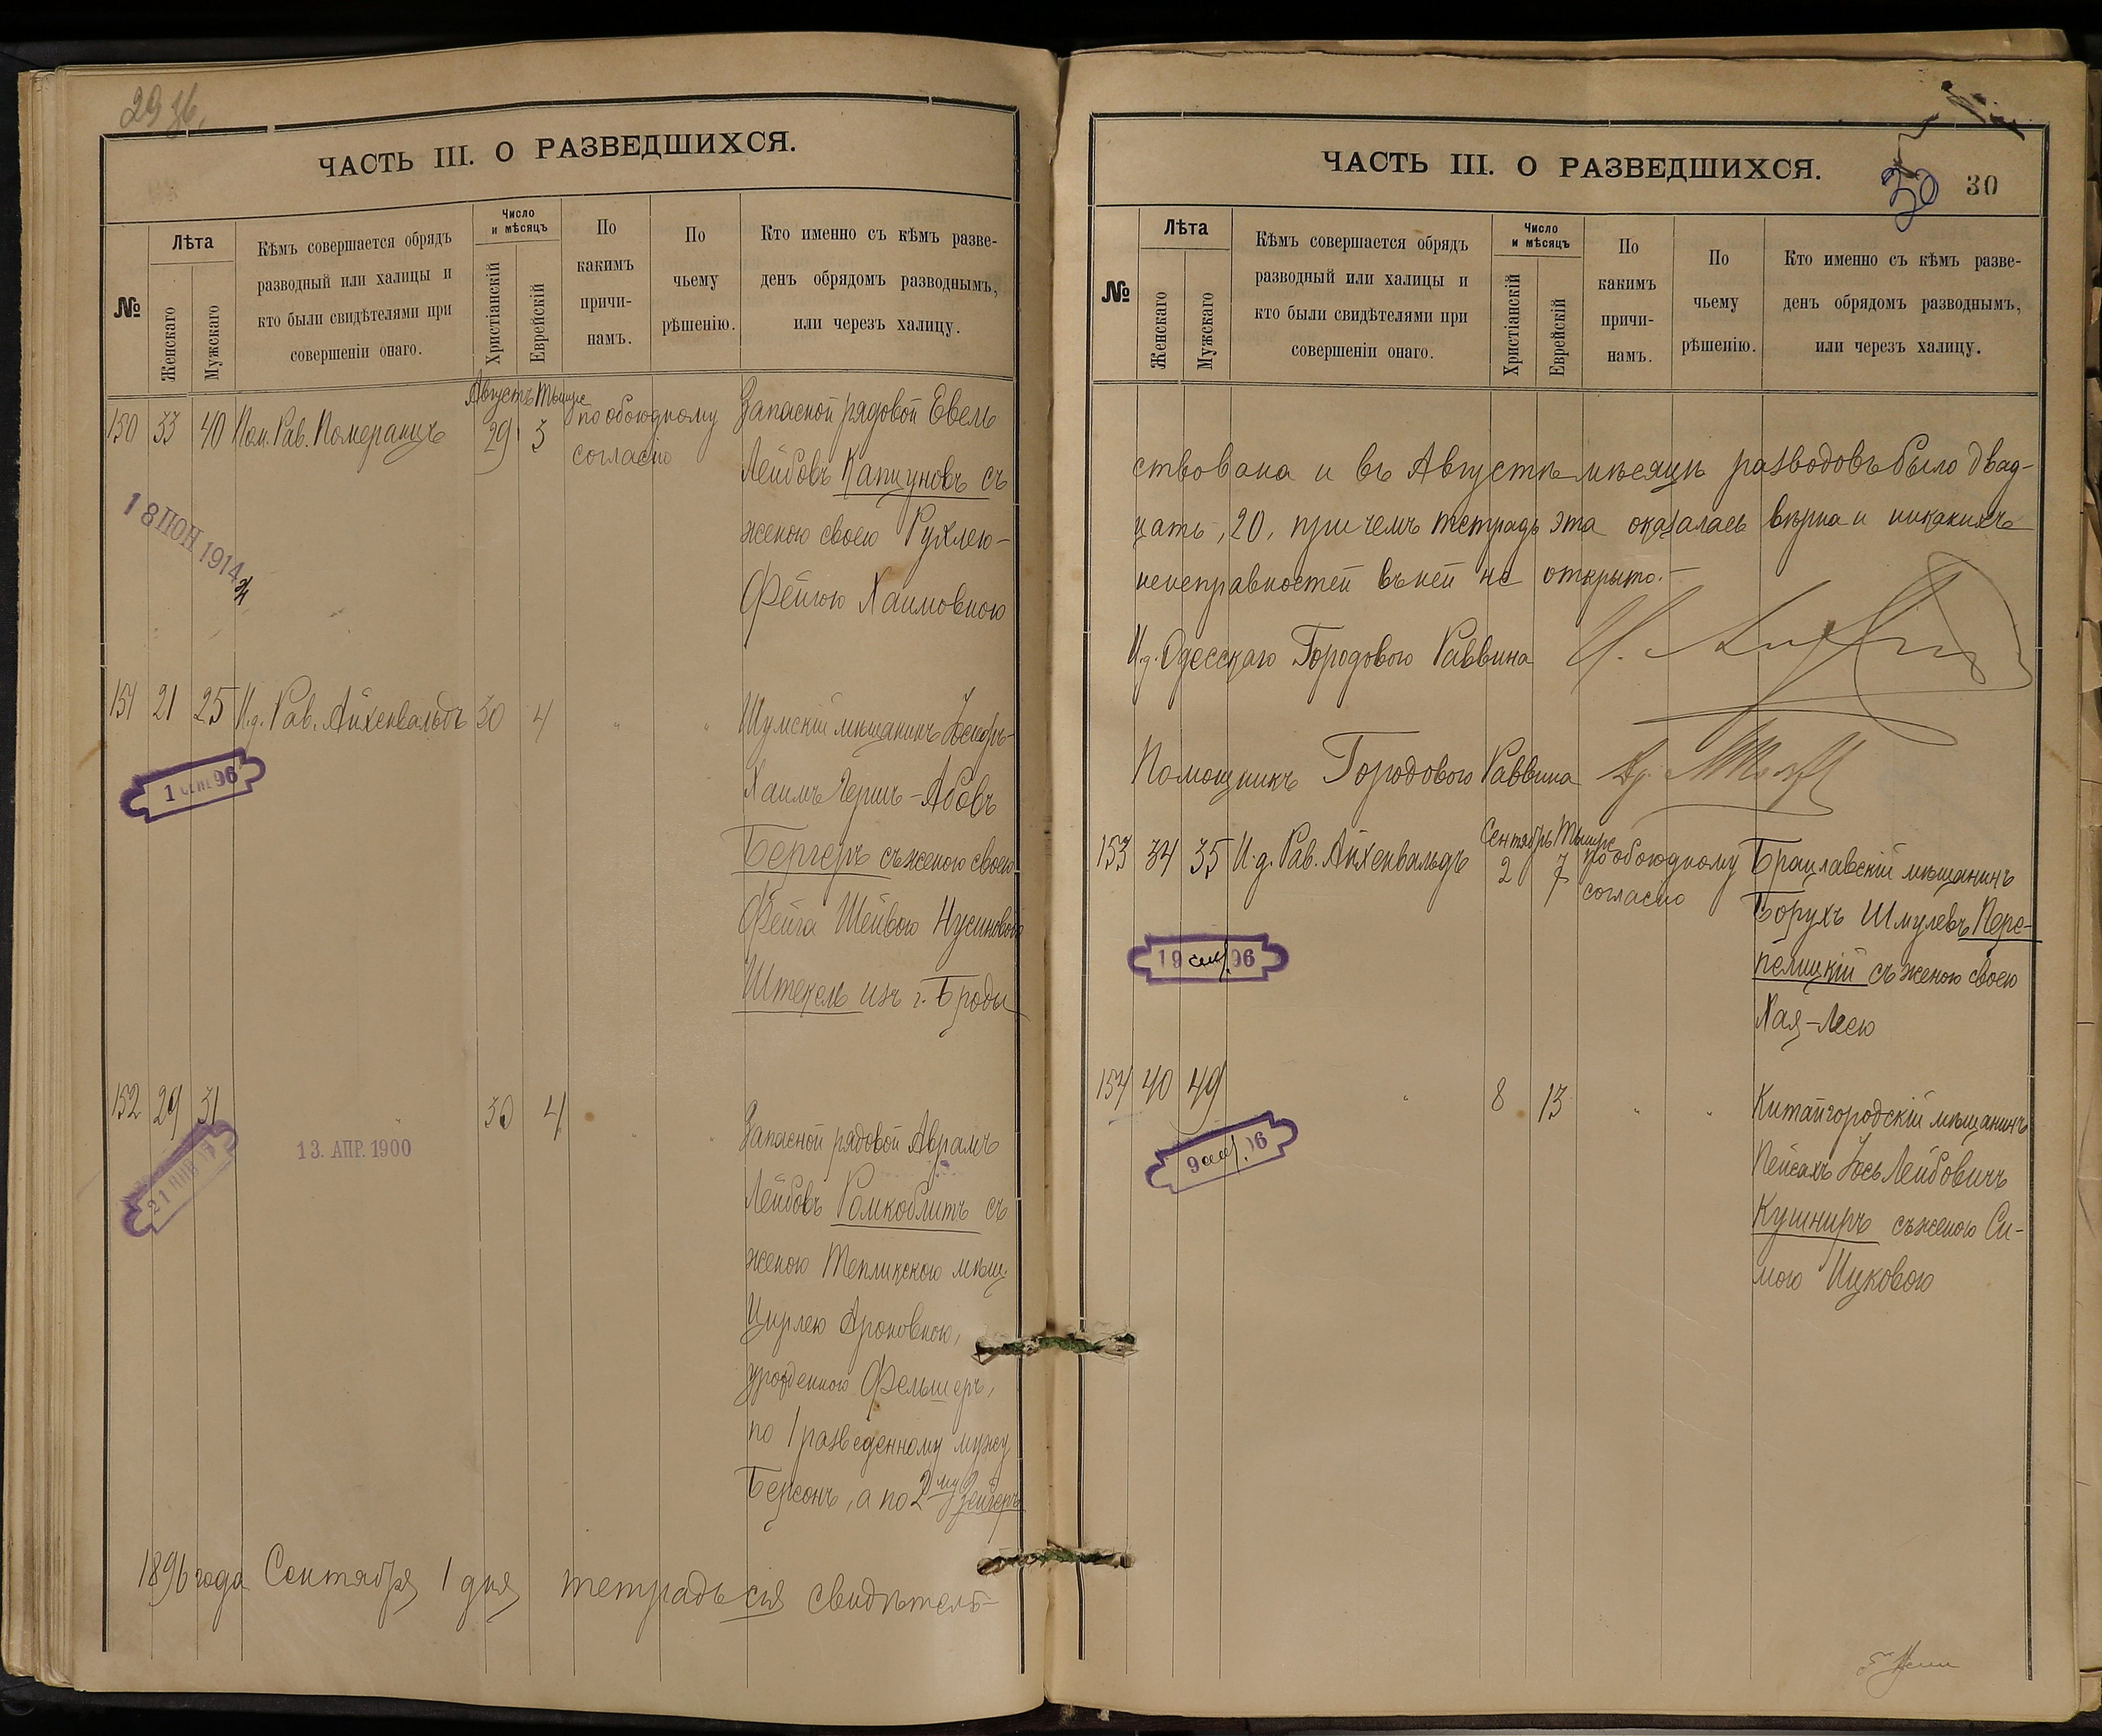 29 об.
ЧАСТЬ III. О РАЗВЕДШИХСЯ.
№
Лѣта
Женскаго
Мужскаго
Кѣмъ совершается обрядъ
разводный или халицы и
кто были свидѣтелями при
совершеніи онаго.
Число
и мѣсяцъ
Христіанскій
Еврейскій
По
какимъ
причи-
намъ.
По
чьему
рѣшенію.
Кто именно съ кѣмъ разве-
денъ обрядомъ разводнымъ,
или черезъ халицу.
Августъ Тышре
150 33 40 Пом. Рав. Померанцъ 29 3 по обоюдному
согласію
Запасной рядовой Евель
Лейбовъ Капцуновъ съ
женою своею Рухлею-
Фейгою Хаимовною
18 ІЮН 1914
151 21 25 И.д. Рав. Айхенвальдъ 30 4 " "
Шумскій мѣщанинъ Іосифъ-
Хаимъ Гершъ-Абовъ
Бергеръ съ женою своею
Фейга Шейвою Нусиновою
Штекель изъ г. Броды
1 СЕНТ 96
152 29 31 " 30 4 " "
Запасной рядовой Аврамъ
Лейбовъ Ромкоблитъ съ
женою Тепликскою мѣщ.
Цирлею Ароновною,
урожденною Фельшеръ,
по 1 разведенному мужу
Берсонъ, а по 2му Зейгеръ
13. АПР. 1900
21 ЯНВ 17
1896 года Сентября 1 дня тетрадь сія свидѣтель-
ЧАСТЬ III. О РАЗВЕДШИХСЯ.
30 30
№
Лѣта
Женскаго
Мужскаго
Кѣмъ совершается обрядъ
разводный или халицы и
кто были свидѣтелями при
совершеніи онаго.
Число
и мѣсяцъ
Христіанскій
Еврейскій
По
какимъ
причи-
намъ.
По
чьему
рѣшенію.
Кто именно съ кѣмъ разве-
денъ обрядомъ разводнымъ,
или черезъ халицу.
ствована и въ Августѣ мѣсяцѣ разводовъ было двад-
цать, 20, при чемъ тетрадь эта оказалась вѣрна и никакихъ
неисправностей въ ней не открыто.-
И.д. Одесскаго Городового Раввина
Помощникъ Городового Раввина
Сентябрь Тышре
153 34 35 И.д. Рав. Айхенвальдъ 2 7 по обоюдному
согласію
Брацлавскій мѣщанинъ
Борухъ Шмулевъ Пере-
пелицкій съ женою своею
Хая-Лею
19 сен. 96
154 40 49 " 8 13 " "
Китайгородскій мѣщанинъ
Пейсахъ Іось Лейбовичъ
Кушниръ съ женою Си-
мою Ицковою
9 сен. 96